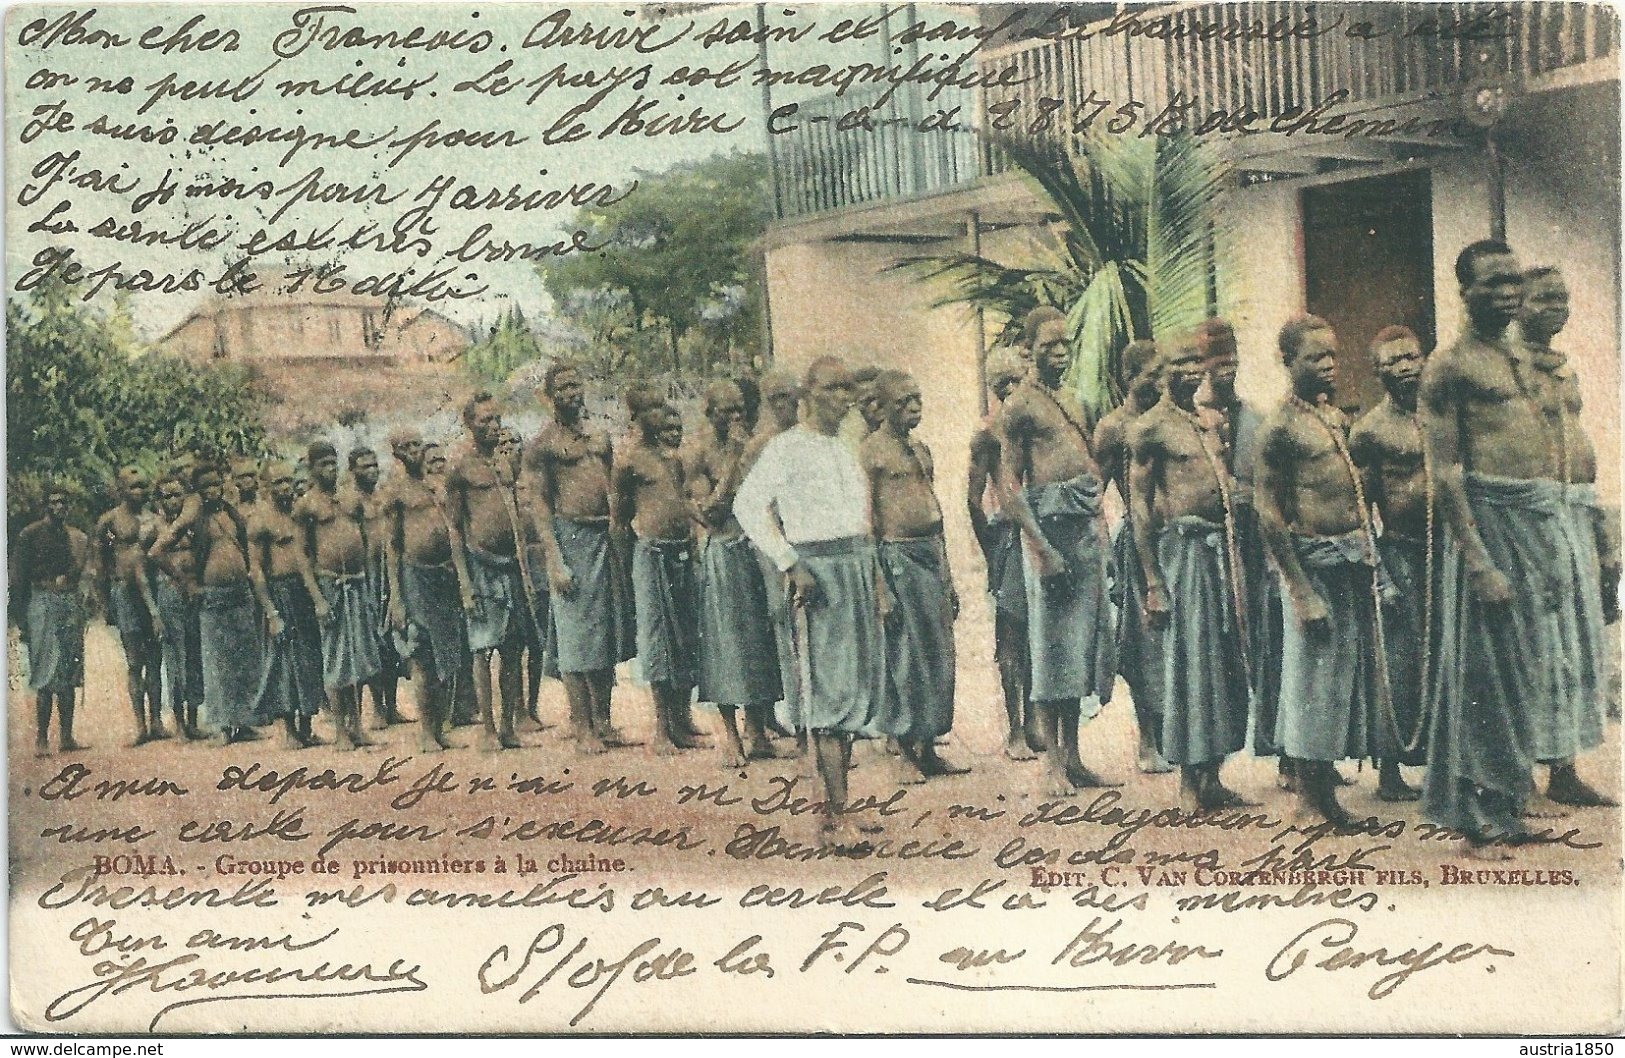 Mon cher François. Arrivé sain et sauf. La traversée a été
on ne peut mieux. Le pays est magnifique
Je suis désigné pour le Kivu c-à-d 2875 K de chemin
J'ai 4 mois pour y arriver
La santé est très bonne.
Je pars le
A mon depart je n'ai vu ni Demol, ni delegation, pas meme
une carte pour s'excuser. Remercie les de ma part
BOMA. - Groupe de prisonniers à la chaîne.
EDIT. C. VAN CORTENBERGH FILS, BRUXELLES.
Presente mes amitiés au cercle et a ses membres.
Ton ami
S/of de la F.P. au Kivu
delcampe.net
austria1850